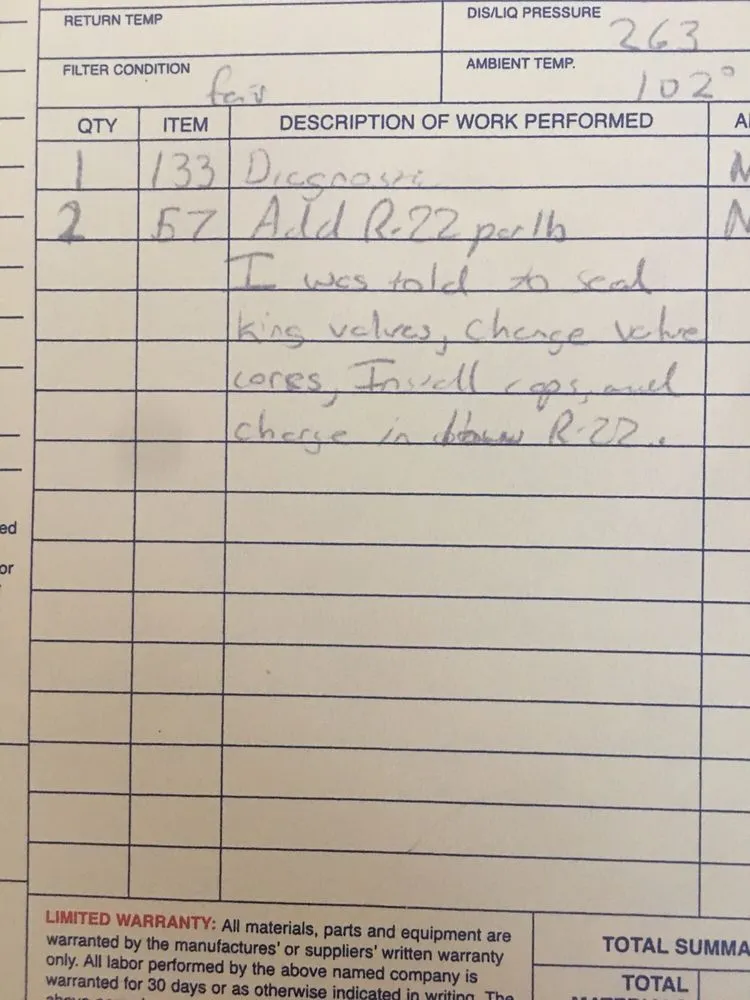 RETURN TEMP
DIS/LIQ PRESSURE
263
FILTER CONDITION
fair
AMBIENT TEMP.
102°
QTY ITEM DESCRIPTION OF WORK PERFORMED A
1 133 Diagnostic
2 57 Add R-22 per lb
I was told to seal
king valves, Change valve
cores, Install caps, and
charge in R-22.
ed
or
LIMITED WARRANTY: All materials, parts and equipment are
warranted by the manufactures' or suppliers' written warranty
only. All labor performed by the above named company is
warranted for 30 days or as otherwise indicated in writing. The
TOTAL SUMMA
TOTAL